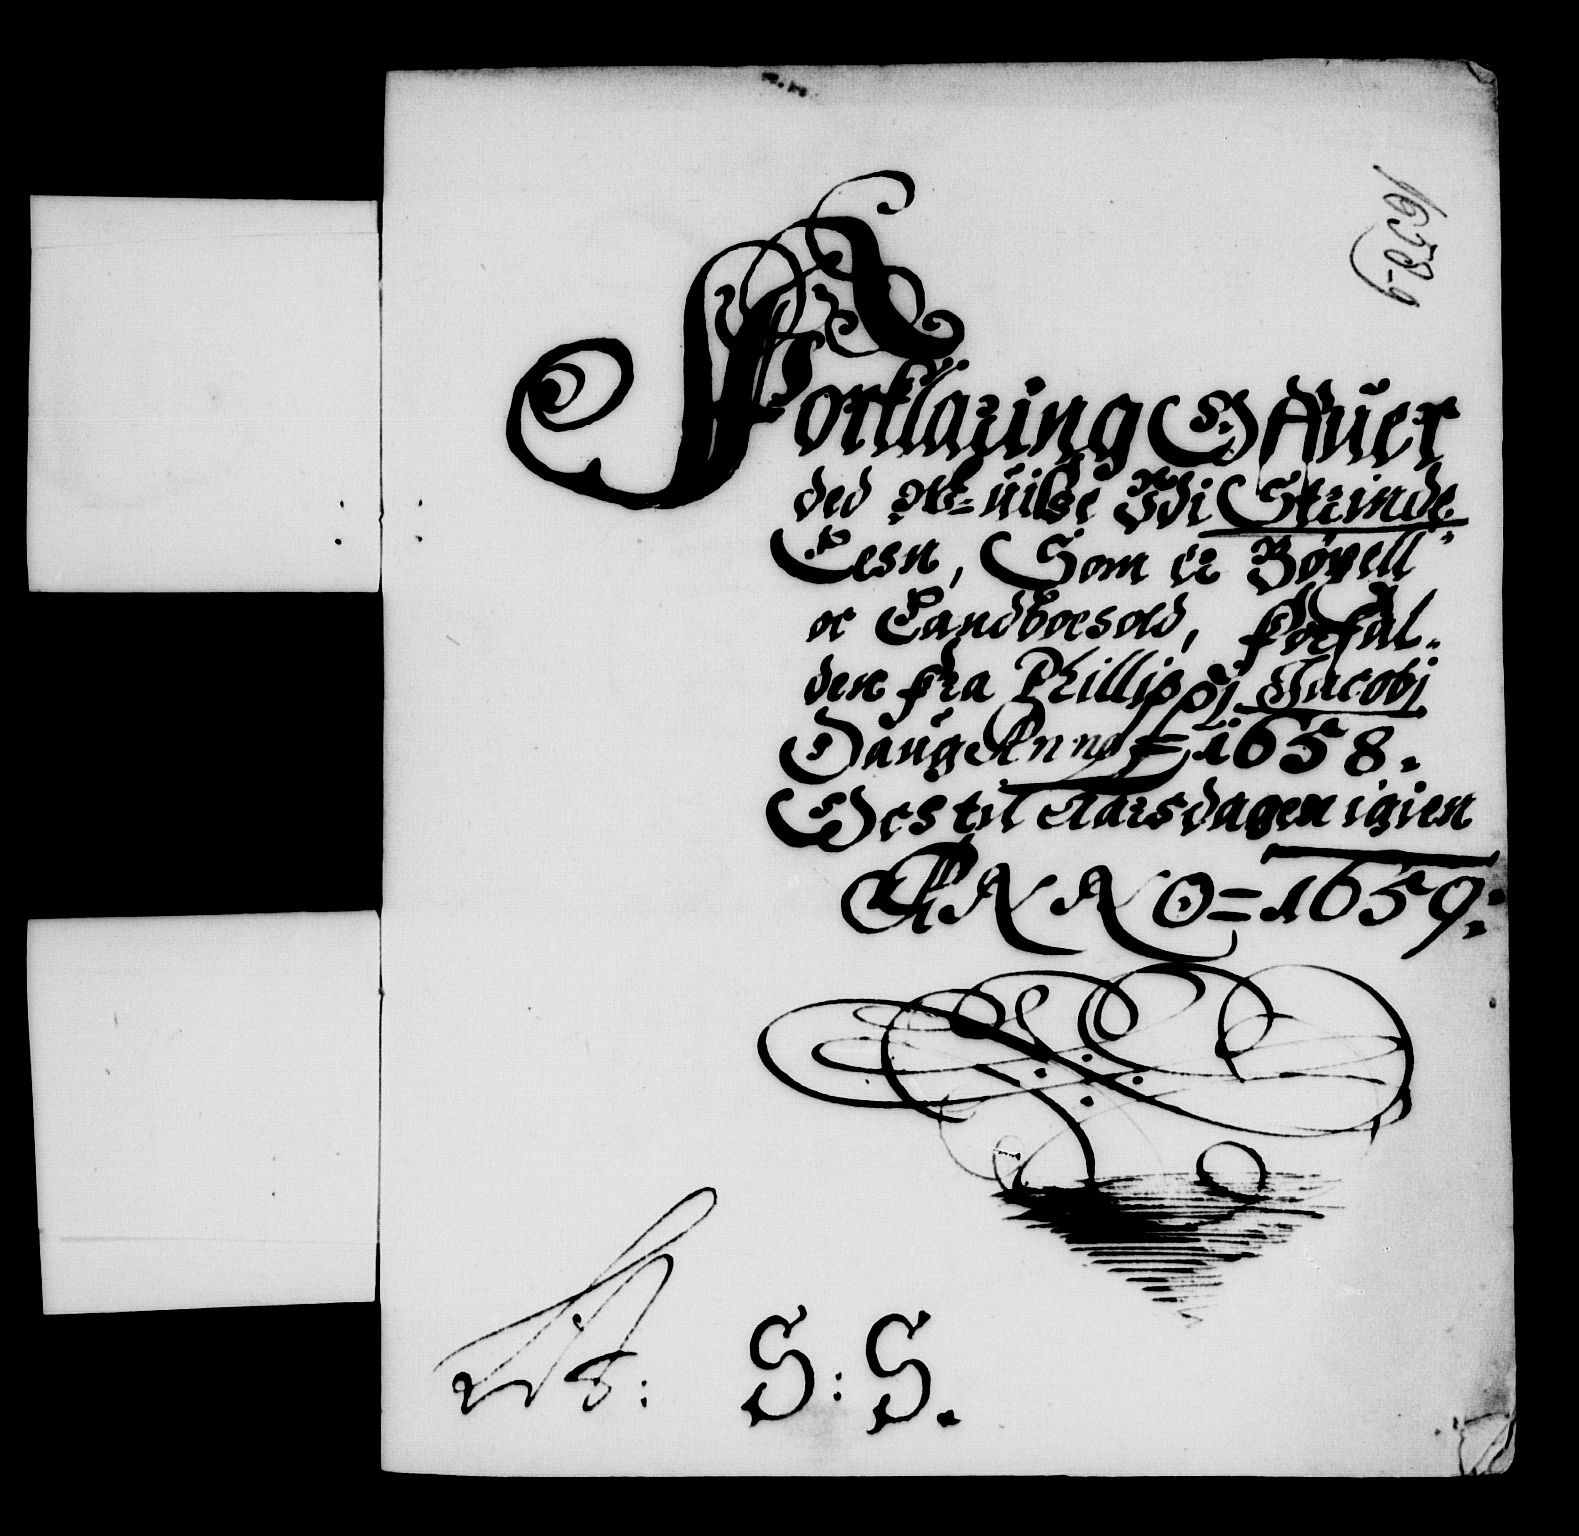 1658-9
Forklaring Offuer
ded Wuise Udi Strinde
Leen, Som er Boxell
oc Landboesold, forfal-
den fra Phillippj Jacobj
Daug Anno = 1658.
Oc til Aarsdagen igien
ANNO = 1659:
S: S.